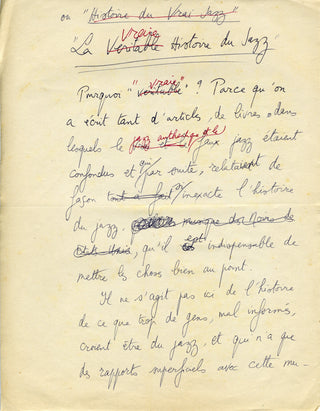 ou "Histoire du Vrai Jazz"
vraie
"La Véritable Histoire du Jazz"
vraie
Pourquoi "véritable" ? Parce qu'on
a écrit tant d'articles, de livres, dans
jazz authentique et le
lesquels le faux jazz étaient
qui
confondus et par suite, relataient de
façon tout à fait inexacte l'histoire
du jazz, musique des Noirs des
Etats Unis, qu'il est indispensable de
mettre les choses bien au point.
Il ne s'agit pas ici de l'histoire
de ce que trop de gens, mal informés,
croient être du jazz, et qui n'a que
des rapports superficiels avec cette mu-